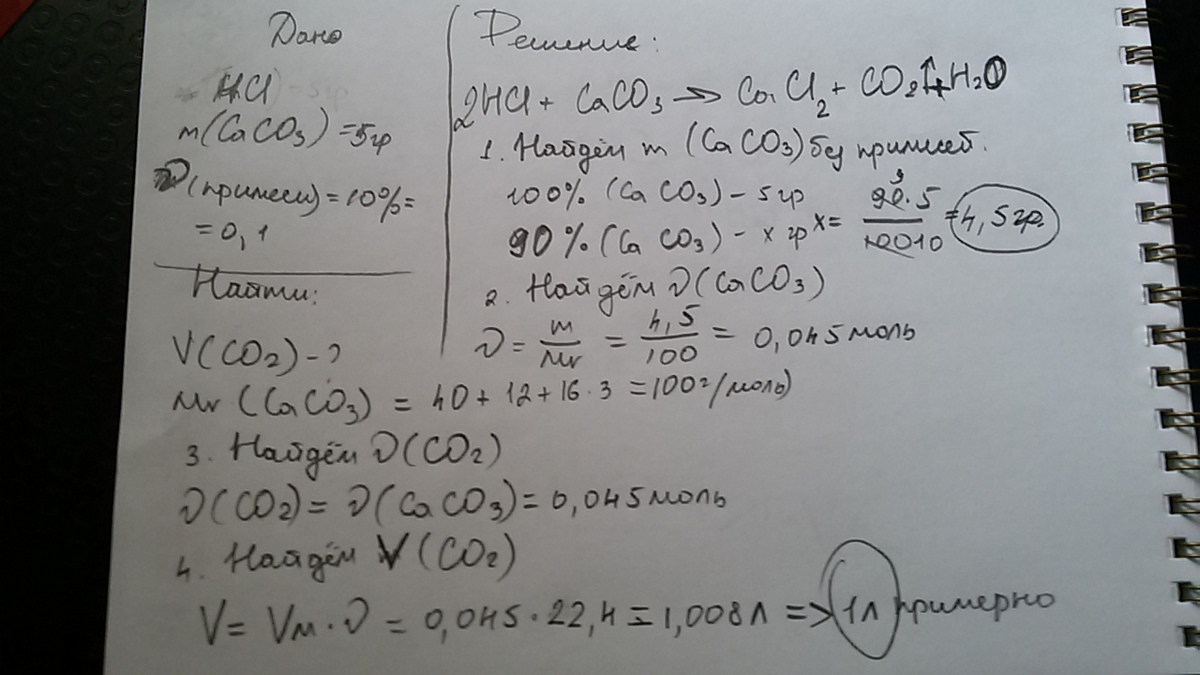 Дано
HCl
m(CaCO3) = 5гр
(примеси) = 10% =
= 0,1
Найти:
V(CO2) - ?
Решение:
2HCl + CaCO3 → CaCl2 + CO2↑ + H2O
1. Найдём m (CaCO3) без примесей.
100% (CaCO3) - 5 гр
90% (CaCO3) - x гр x = 90·5 / 100 10 = 4,5гр.
2. Найдём ν(CaCO3)
ν = m/Mr = 4,5/100 = 0,045 моль
Mr (CaCO3) = 40 + 12 + 16·3 = 100г/моль)
3. Найдём ν(CO2)
ν(CO2) = ν(CaCO3) = 0,045 моль
4. Найдём V(CO2)
V = Vм·ν = 0,045·22,4 = 1,008л => 1л примерно